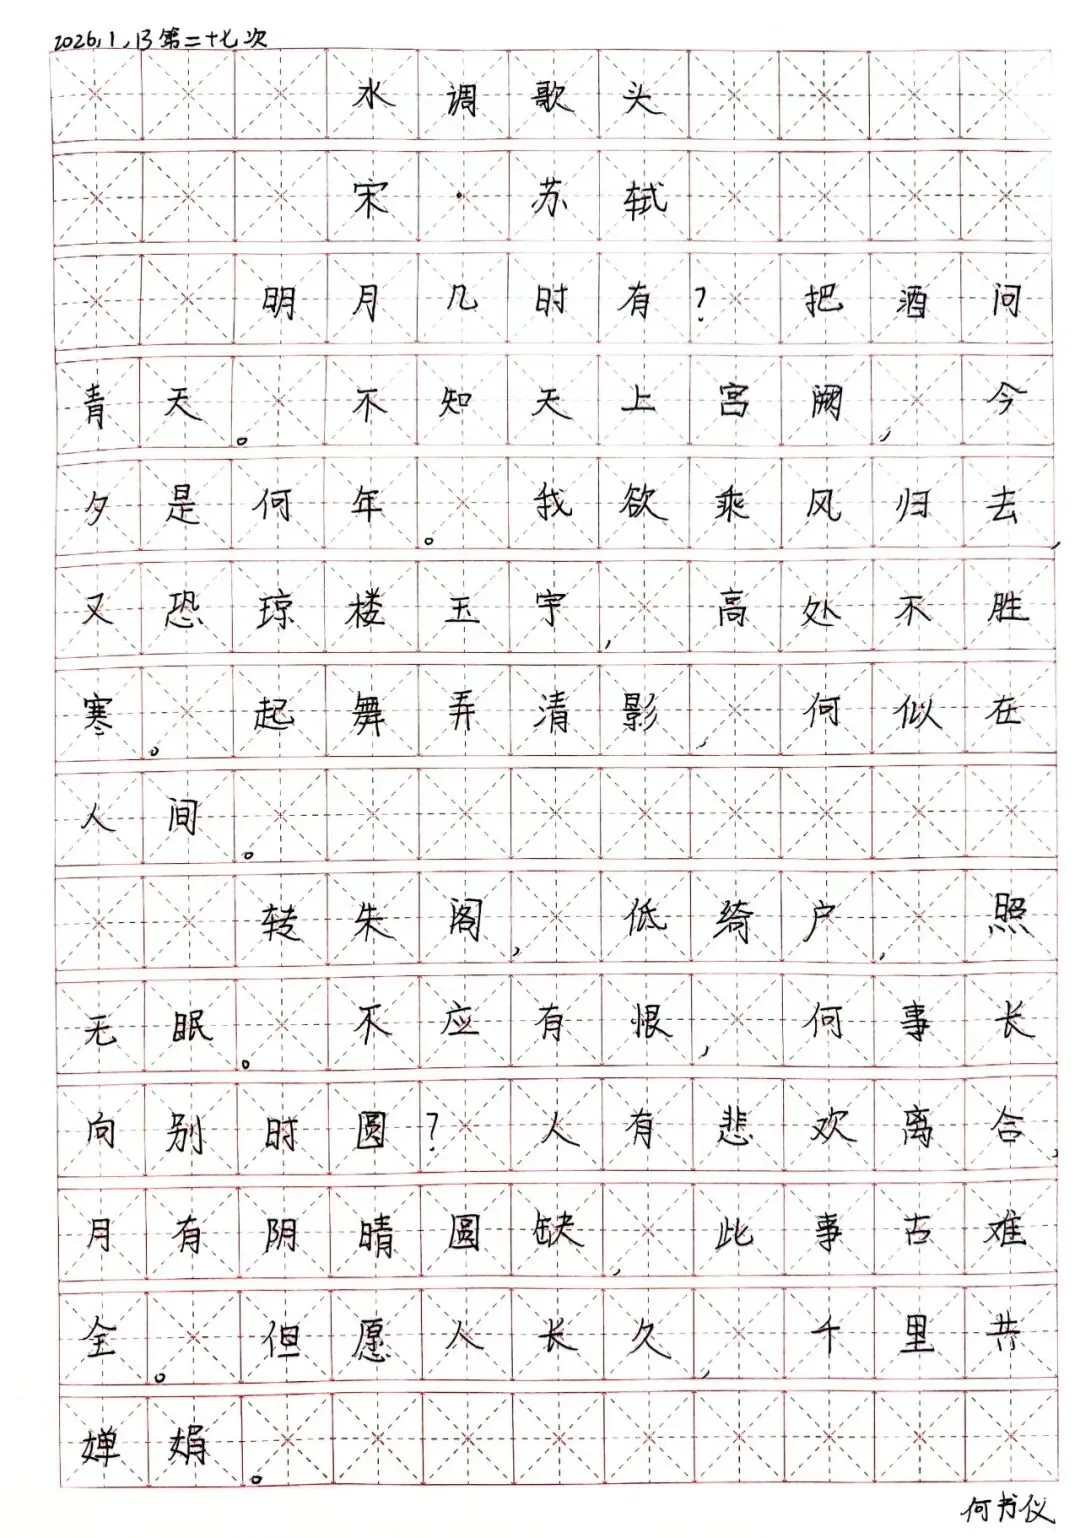 2026.1.13第二十七次
水调歌头
宋·苏轼
明月几时有?把酒问
青天。不知天上宫阙,今
夕是何年。我欲乘风归去,
又恐琼楼玉宇,高处不胜
寒。起舞弄清影,何似在
人间。
转朱阁,低绮户,照
无眠。不应有恨,何事长
向别时圆?人有悲欢离合,
月有阴晴圆缺,此事古难
全。但愿人长久,千里共
婵娟。
何书仪